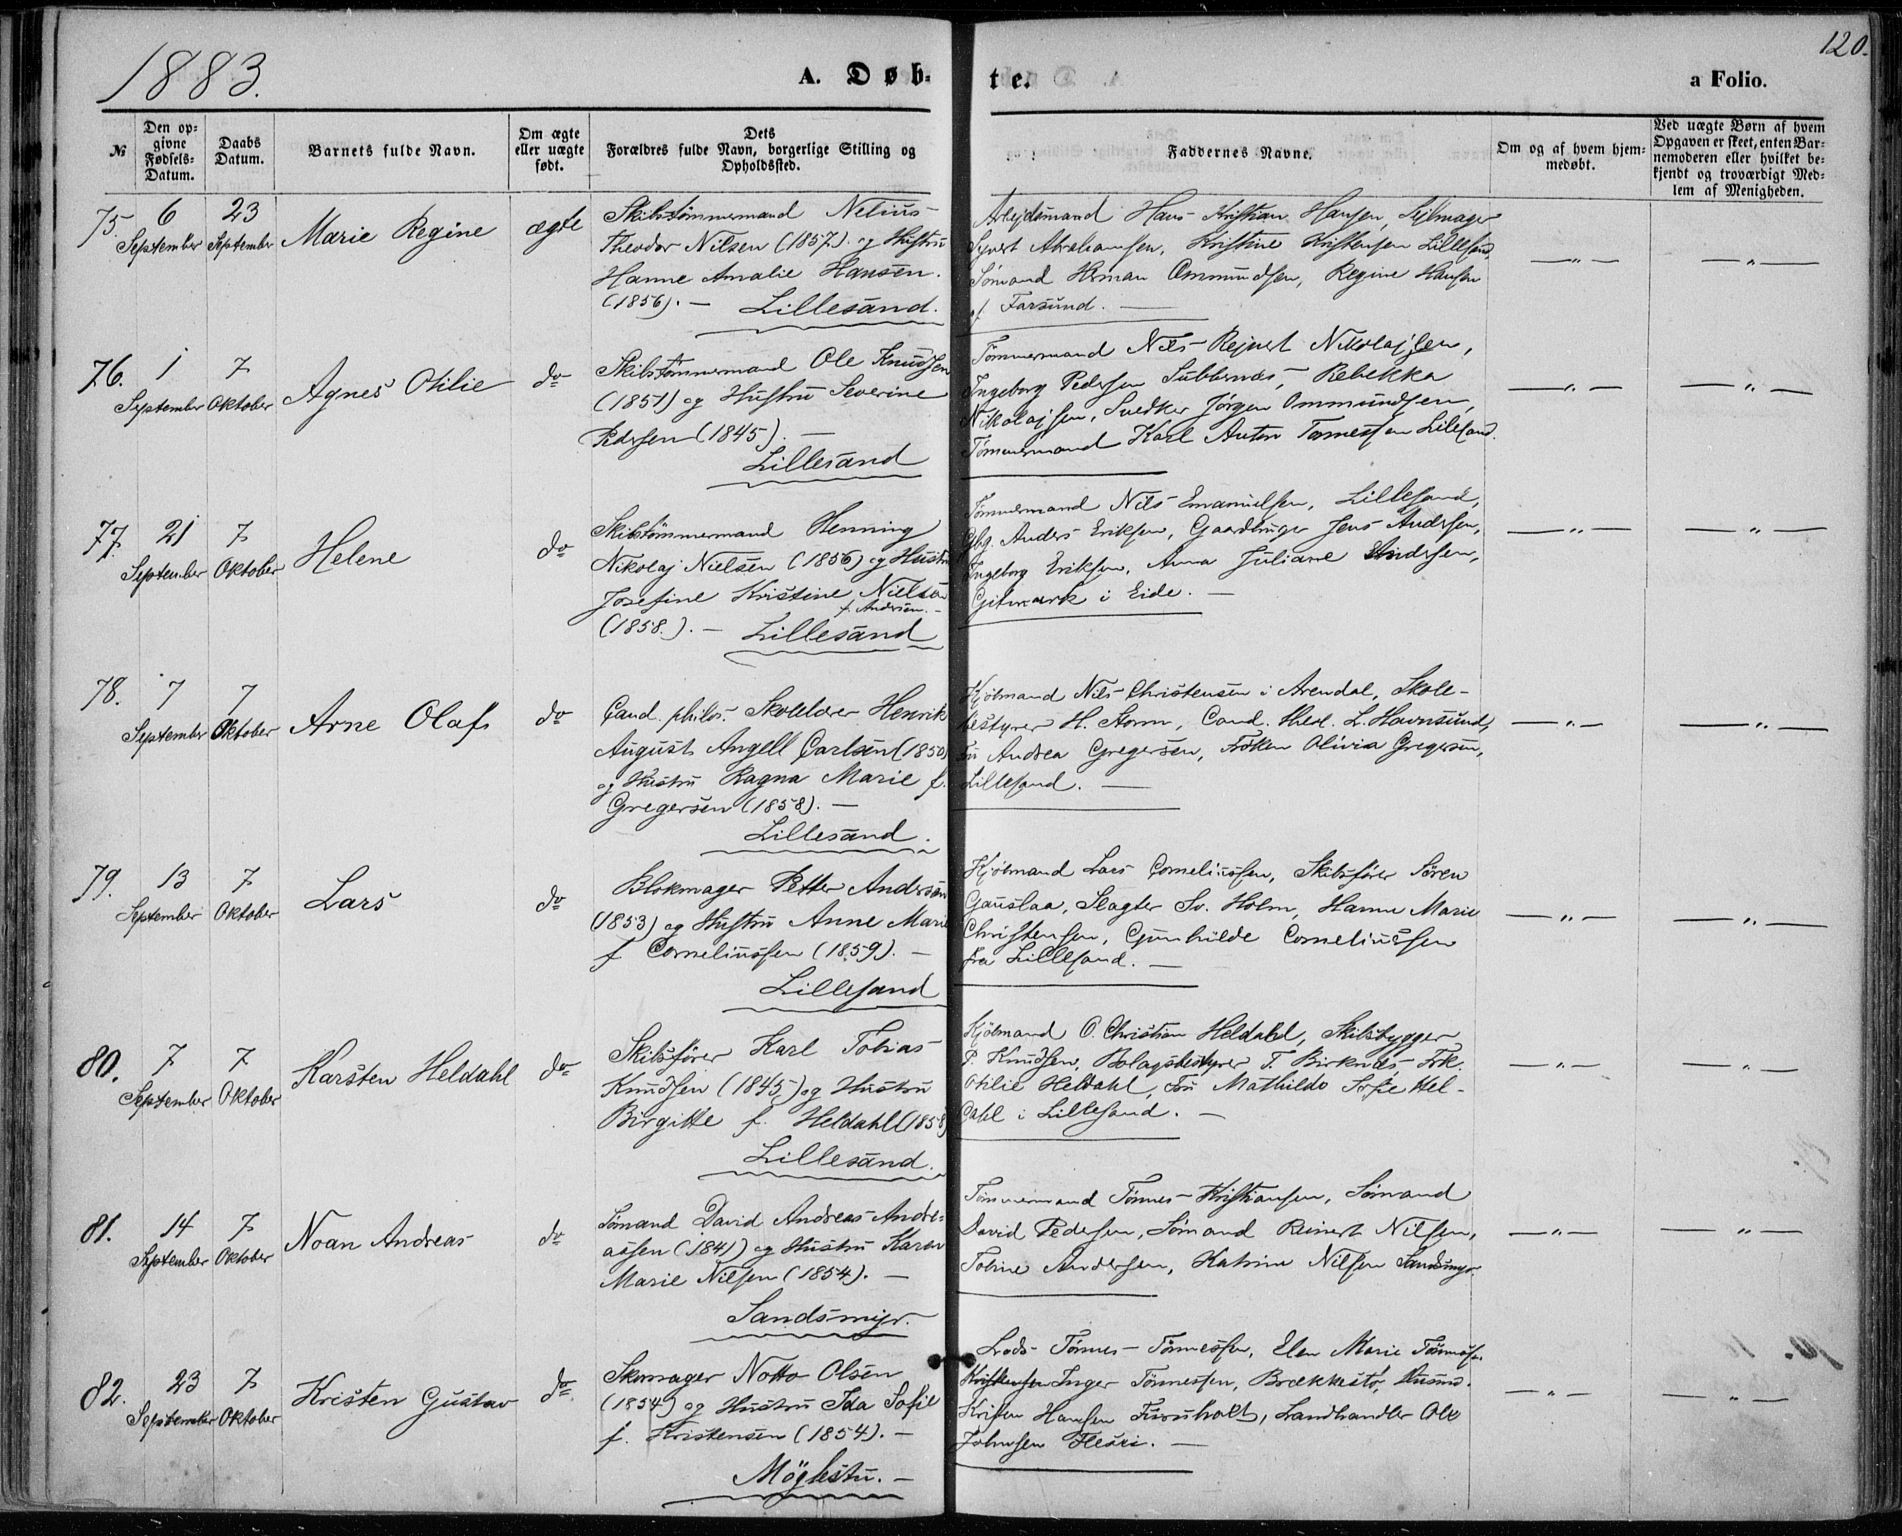 1883.
A. Døb-
te.
a Folio.
120.
№
Den op-
givne
Fødsels-
Datum.
Daabs
Datum.
Barnets fulde Navn.
Om ægte
eller uægte
født.
Dets
Forældres fulde Navn, borgerlige Stilling og
Opholdssted.
Faddernes Navne.
Om og af hvem hjem-
medøbt.
Ved uægte Børn af hvem
Opgaven er skeet, enten Bar-
nemoderen eller hvilket be-
kjendt og troværdigt Med-
lem af Menigheden.
75. 6 September 23 September Marie Regine ægte
Skibstømmermand Nelius
Theodor Nilsen (1857) og Hustru
Hanne Amalie Hansen.
(1856). — Lillesand.
Arbejdsmand Hans Kristian Hansen, Sejlmager
Syvert Abrahamsen, Kristine Kristensen Lillesand,
Sømand Herman Ommundsen, Regine Hansen
af Farsund. —
—"— —"—
76. 1 September 7 Oktober Agnes Otilie do
Skibstømmermand Ole Knudsen
(1851) og Hustru Severine
Pedersen (1845). —
Lillesand
Tømmermand Nils Rejnert Nikolajsen,
Ingeborg Pedersen Subbernæs, Rebekka
Nikolajsen, Snedker Jørgen Ommundsen,
Tømmermand Karl Anton Tønnessen Lillesand.
—"— —"—
77. 21 September 7 Oktober Helene do
Skibstømmermand Henning
Nikolaj Nielsen (1856) og Hustru
Josefine Kristine Nielsen
f. Andersen. —
(1858.). — Lillesand
Tømmermand Nils Emanuelsen, Lillesand,
Gbg. Anders Eriksen, Gaardbruger Jens Andersen,
Ingeborg Eriksen, Anna Juliane Andersen,
Gitmark i Eide. —
—"— "—
78. 7 September 7 Oktober Arne Olaf do
Cand. philos. Skolelærer Henrik
August Angell Carlsen (1850)
og Hustru Ragna Marie f.
Gregersen (1858). —
Lillesand.
Kjøbmand Nils Christensen i Arendal, Skole-
bestyrer H. Storm, Cand. theol. L. Havnsund,
Fru Andrea Gregersen, Frøken Olivia Gregersen,
Lillesand. —
—"— —"—
79. 13 September 7 Oktober Lars do
Blokmager Petter Andersen
(1853) og Hustru Anne Marie
f Corneliussen (1859). —
Lillesand
Kjøbmand Lars Corneliussen, Skibsfører Søren
Gauslaa, Slagter Sv. Holm, Hanne Marie
Christensen, Gunhilde Corneliussen
fra Lillesand. —
—"— —"—
80. 7 September 7 Oktober Karsten Heldahl do
Skibsfører Karl Tobias
Knudsen (1845) og Hustru
Birgitte f. Heldahl (1858)
Lillesand.
Kjøbmand O. Christian Heldahl, Skibsbygger
P. Knudsen, Bolagsbestyrer T. Birknæs, Frk.
Otilie Heldahl, Fru Mathilde Sofie Hel-
dahl i Lillesand. —
—"— —"—
81. 14 September 7 Oktober Noan Andreas do
Sømand David Andreas Andre-
assen (1841) og Hustru Karen
Marie Nilsen (1854). —
Sandsmyr.
Tømmermand Tønnes Kristiansen, Sømand
David Pedersen, Sømand Reinert Nilsen,
Tobine Andersen, Katrine Nilsen Sandsmyr.
—"— —"—
82. 23 September 7 Oktober Kristen Gustav do
Skomager Notto Olsen
(1854) og Hustru Ida Sofie
f. Kristensen (1854). —
Møglestu. —
Lods Tønnes Tønnessen, Elen Marie Tønnessen
Kristensen Inger Tønnessen, Brækkestø,
Kristen Hansen Furuholt, Landhandler Ole
Johnsen Heøri. —
—"— —"—